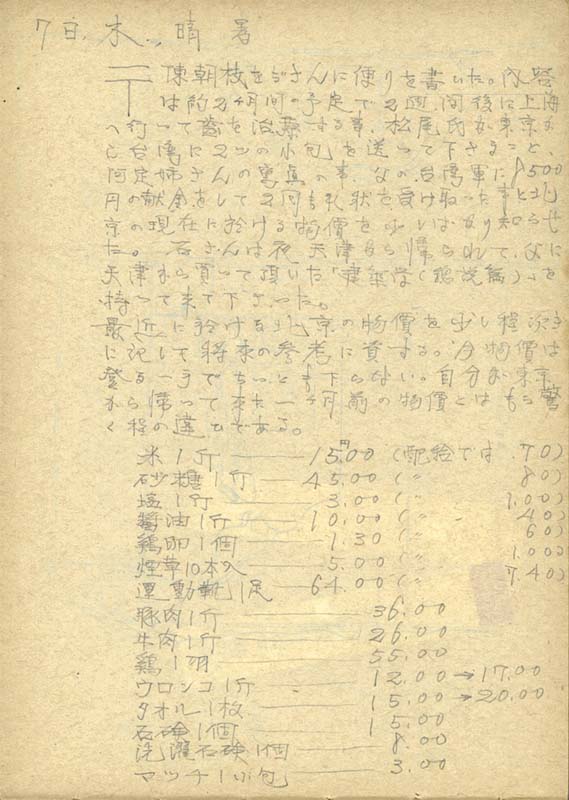 7日, 木, 晴 暑
陳朝枝をぢさんに便りを書いた。内容
は約2ヶ月間の予定で2週間後に上海
へ行って 治療する事、松尾氏が東京か
ら台湾に2ツの小包を送って下さること、
阿定姉さんの写真の事、父の台湾軍に8500
円の献金をして2回も礼状を受け取った事と北
京の現在に於ける物價を少しばかり知らせ
た。 石さんは夜天津から帰られて、父に
天津から買って頂いた「建築学(總説編)」を
持って来て下さった。
最近に於ける北京の物價を少し程次き
に記して将来の参考に資する。今物價は
登る一方でちっとも下らない。自分が東京
から帰って来た一ヶ月前の物價とはもう驚
く程の違ひである。
米1斤 —— 15円00 (配給では .70)
砂糖1斤 —— 45.00 (〃 .80)
塩1斤 —— 3.00 (〃 1.00)
醤油1斤 —— 10.00 (〃 .40)
鶏卵1個 —— 1.30 (〃 .60)
煙草10本入 —— 5.00 (〃 1.00)
運動靴1足 —— 64.00 (〃 7.40)
豚肉1斤 —— 36.00
牛肉1斤 —— 26.00
鶏1羽 —— 55.00
ウロンコ1斤 —— 12.00→17.00
タオル1枚 —— 15.00→20.00
石鹸1個 —— 15.00
洗濯石鹸1個 —— 8.00
マッチ1 包 —— 3.00